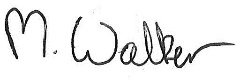 M. Walker